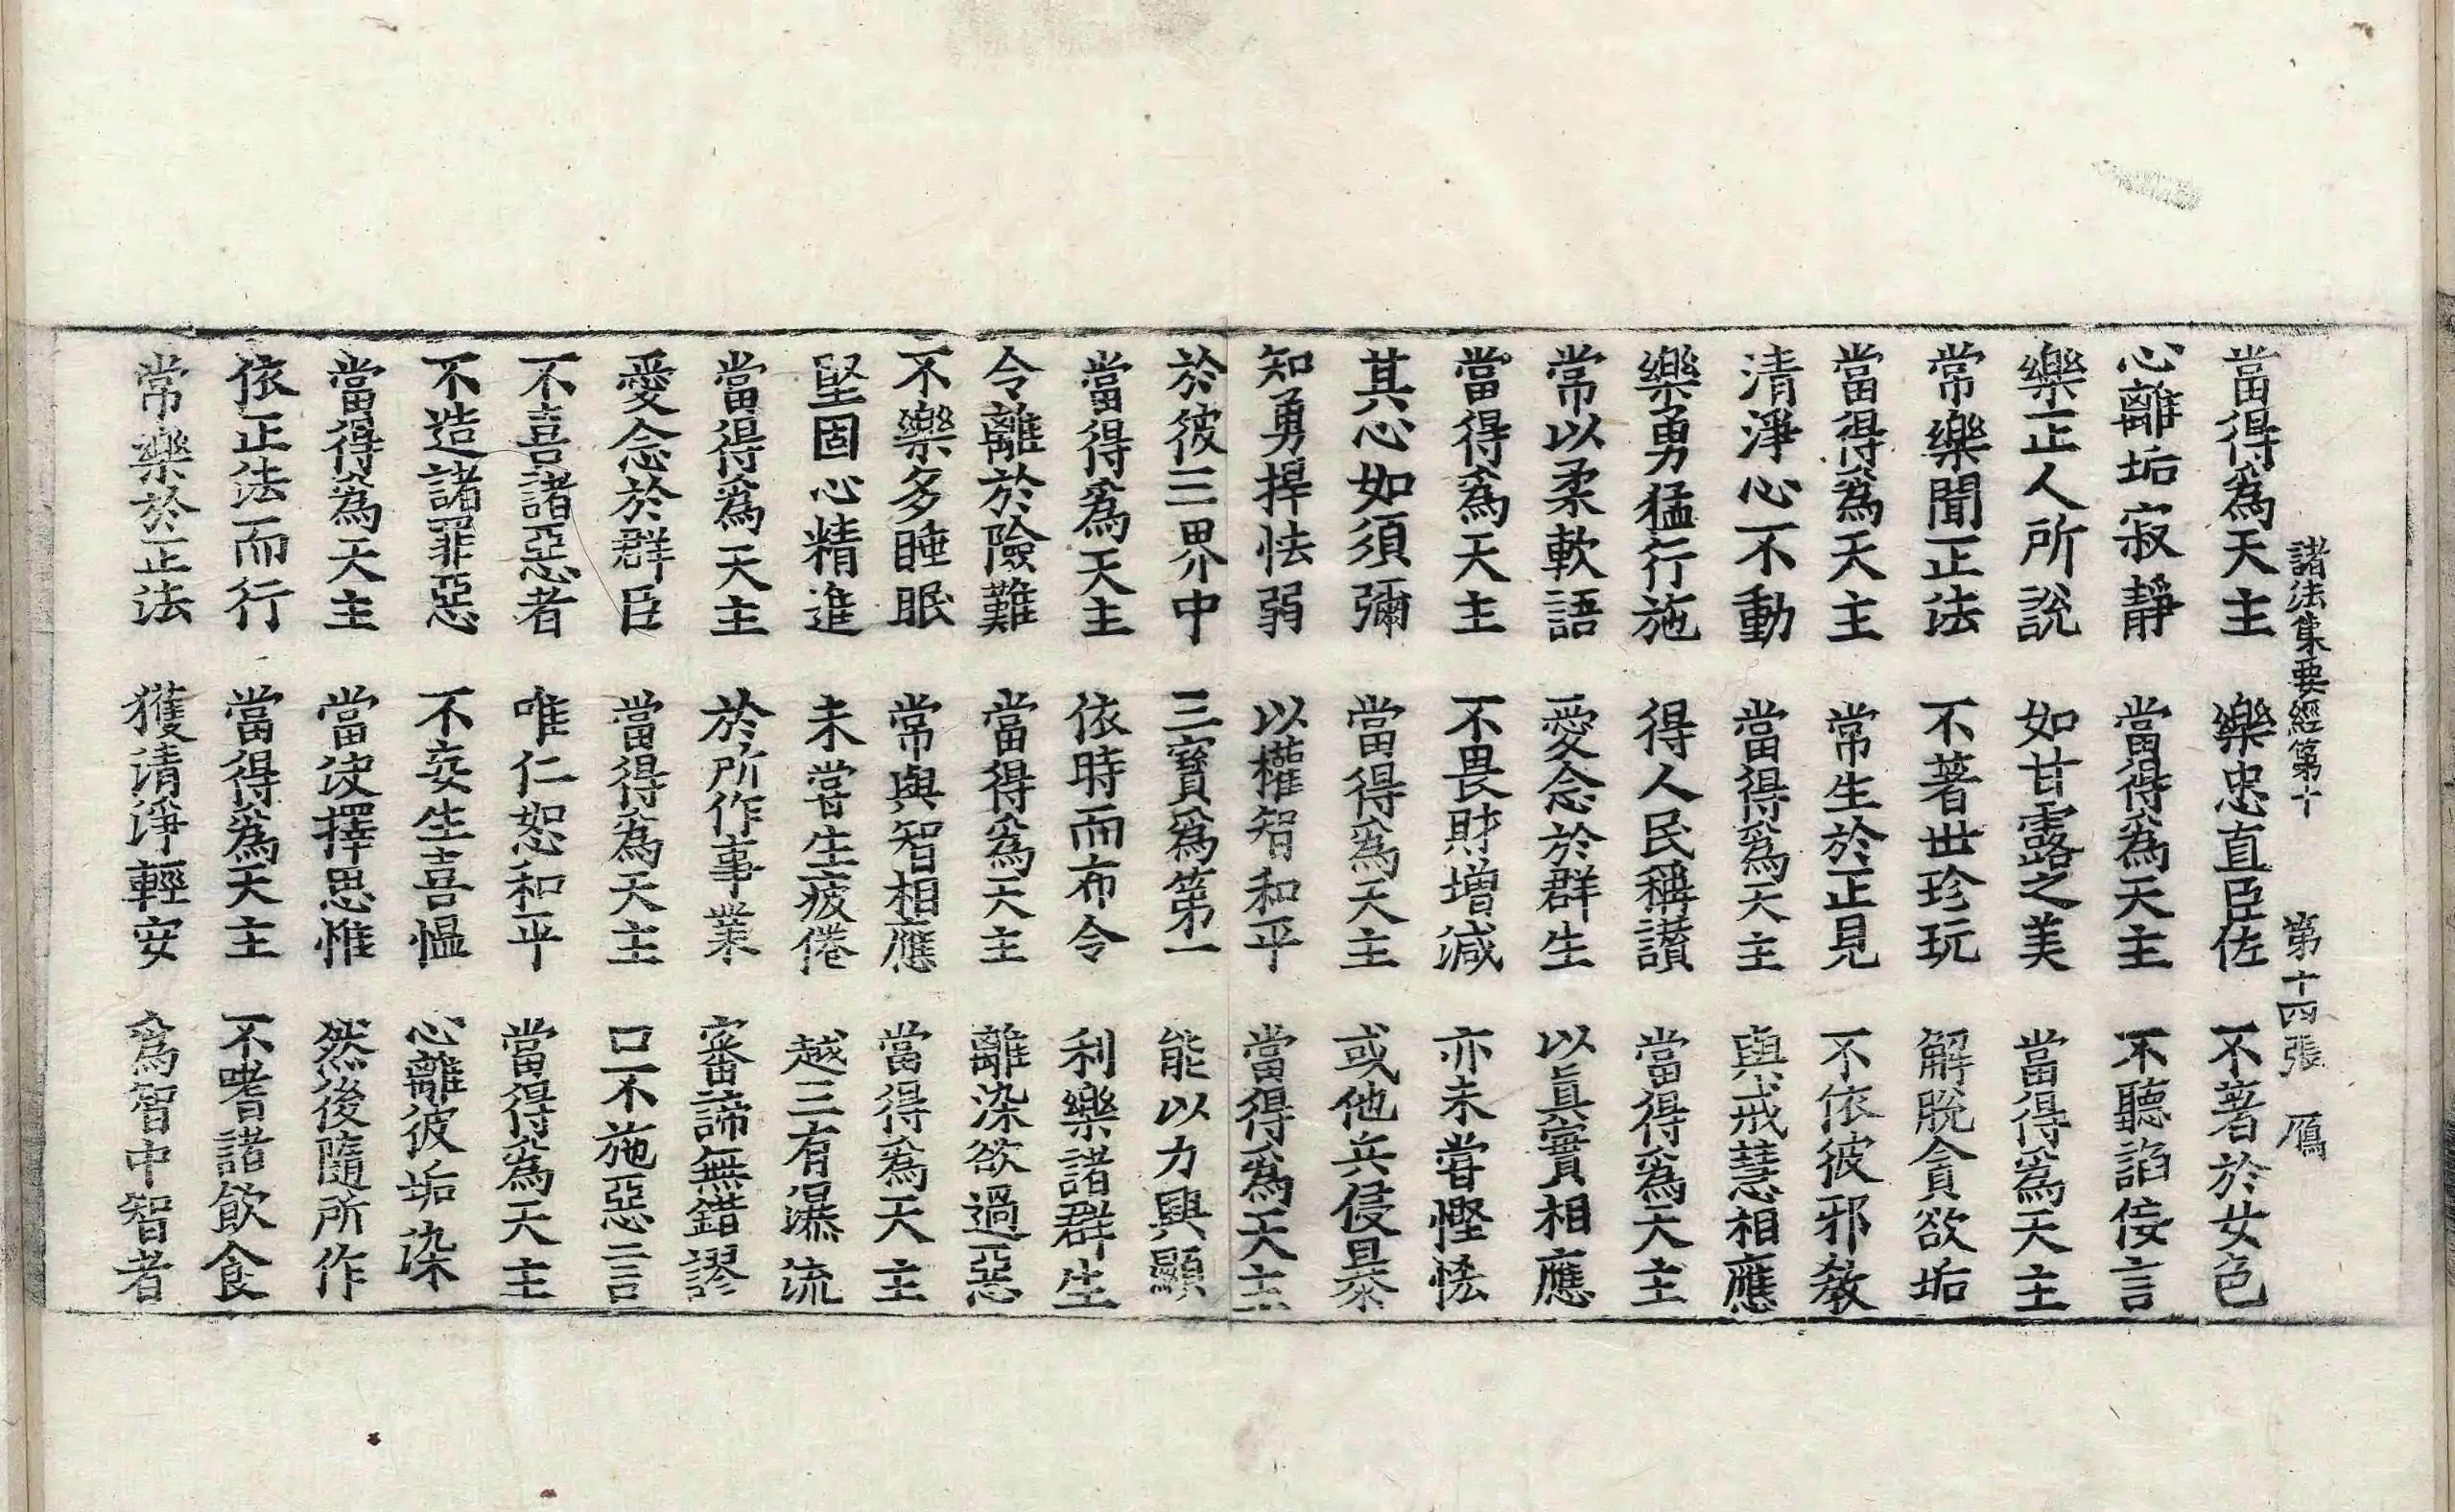 諸法集要經第十　第十四張　鴈
當得爲天主　樂忠直臣佐　不著於女色
心離垢寂靜　當得爲天主　不聽諂佞言
樂正人所說　如甘露之美　當得爲天主
常樂聞正法　不著世珍玩　解脫貪欲垢
當得爲天主　常生於正見　不依彼邪教
清淨心不動　當得爲天主　與戒慧相應
樂勇猛行施　得人民稱讃　當得爲天主
常以柔軟語　愛念於群生　以眞實相應
當得爲天主　不畏財增減　亦未甞慳悋
其心如須彌　當得爲天主　或他兵侵暴
知勇捍怯弱　以權智和平　當得爲天主
於彼三界中　三寶爲第一　能以力興顯
當得爲天主　依時而布令　利樂諸群生
令離於險難　當得爲天主　離染欲過惡
不樂多睡眠　常與智相應　當得爲天主
堅固心精進　未甞生疲倦　越三有瀑流
當得爲天主　於所作事業　審諦無錯謬
愛念於群臣　當得爲天主　口不施惡言
不喜諸惡者　唯仁恕和平　當得爲天主
不造諸罪惡　不妄生喜慍　心離彼垢染
當得爲天主　當决擇思惟　然後隨所作
依正法而行　當得爲天主　不嗜諸飮食
常樂於正法　獲清淨輕安　爲智中智者